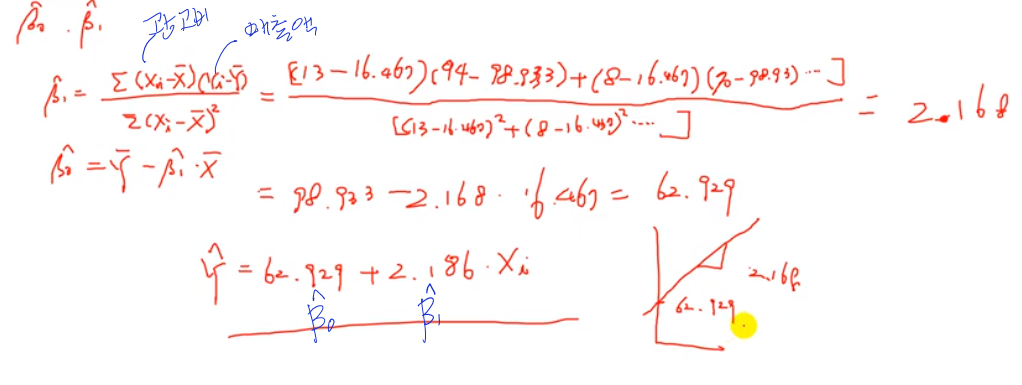 β̂₀ . β̂₁ 광고비 매출액
β̂₁ = Σ(Xᵢ-X̄)(Yᵢ-Ȳ) / Σ(Xᵢ-X̄)² = [(13-16.467)(94-98.933)+(8-16.467)(70-98.93)...] / [(13-16.467)²+(8-16.467)²....] = 2.168
β̂₀ = Ȳ - β̂₁ · X̄
= 98.933 - 2.168 · 16.467 = 62.929
Ŷ = 62.929 + 2.186 · Xᵢ
β̂₀ β̂₁
2.168
62.929